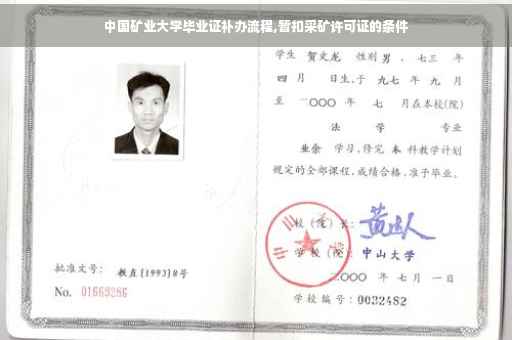 中国矿业大学毕业证补办流程,暂扣采矿许可证的条件
学生 贺文龙 性别 男 、七三 年
四 月 日生,于 九七 年 九 月
至 二〇〇〇 年 七 月在本校(院)
法 学 专业
业余 学习,修完 本 科教学计划
规定的全部课程,成绩合格,准予毕业。
校(院)长:
学校(院): 中山大学
二〇〇〇 年 七月 一日
学校编号: 0032482
批准文号: 教直[1993]8号
No. 01669286